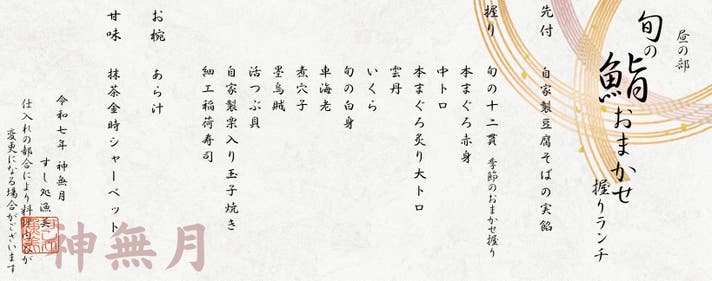 昼の部
旬の鮨おまかせ
握りランチ
先付 自家製豆腐そばの実餡
握り 旬の十二貫 季節のおまかせ握り
本まぐろ赤身
中トロ
本まぐろ炙り大トロ
雲丹
いくら
旬の白身
車海老
煮穴子
墨烏賊
活つぶ貝
自家製栗入り玉子焼き
細工稲荷寿司
お椀 あら汁
甘味 抹茶金時シャーベット
令和七年 神無月
すし処漁美
仕入れの都合により料理内容が
変更になる場合がございます
神無月